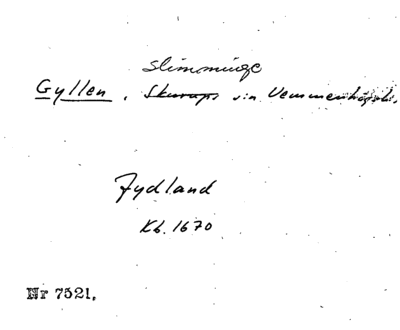 Slimminge
Gyllen, Skurups sn Vemmenhögsh.
Fydland
Kb. 1670
Nr 7521.